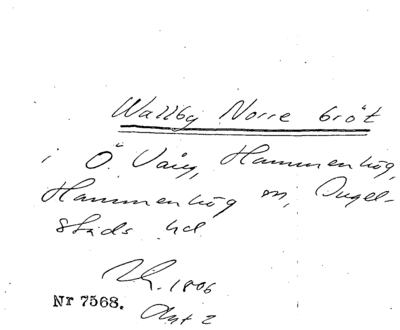 Wallby Norre bröt
i Ö. Vång, Hammenhög,
Hammenhög sn, Ingel-
stads hd
1806
Nr 7568.
Akt 2